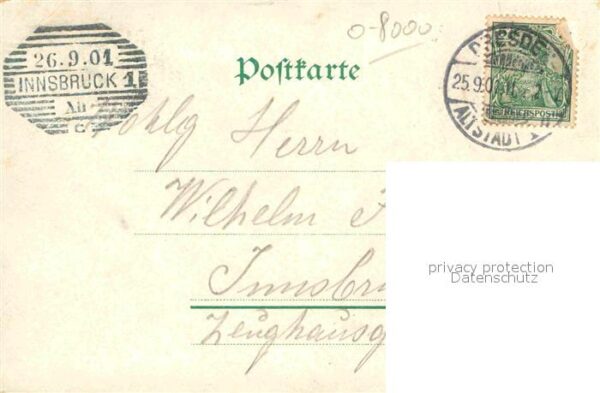 0-8000
26.9.01
INNSBRUCK 1
Postkarte
DRESDEN
25.9.01
ALTSTADT
REICHSPOST
Wohlg Herrn
Wilhelm
Innsbru
Zeughausg
privacy protection
Datenschutz